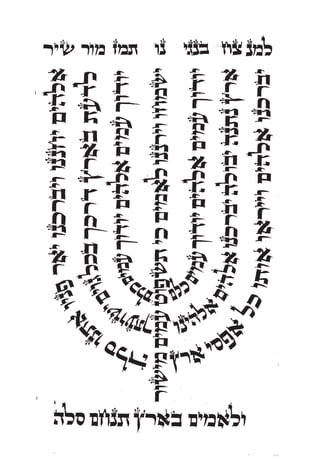 למנ צח בנגי נו תמז מור שיר
אלהים יחננו ויברכנו יאר פניו אתנו סלה
לדעת בארץ דרכך בכל גוים ישועתך
יודוך עמים אלהים יודוך עמים כלם
ישמחו וירננו לאמים כי תשפט עמים מישור
יודוך עמים אלהים יודוך עמים כלם
ארץ נתנה יבולה יברכנו אלהים אלהינו
יברכנו אלהים וייראו אותו כל אפסי ארץ
ולאמים בארץ תנחם סלה